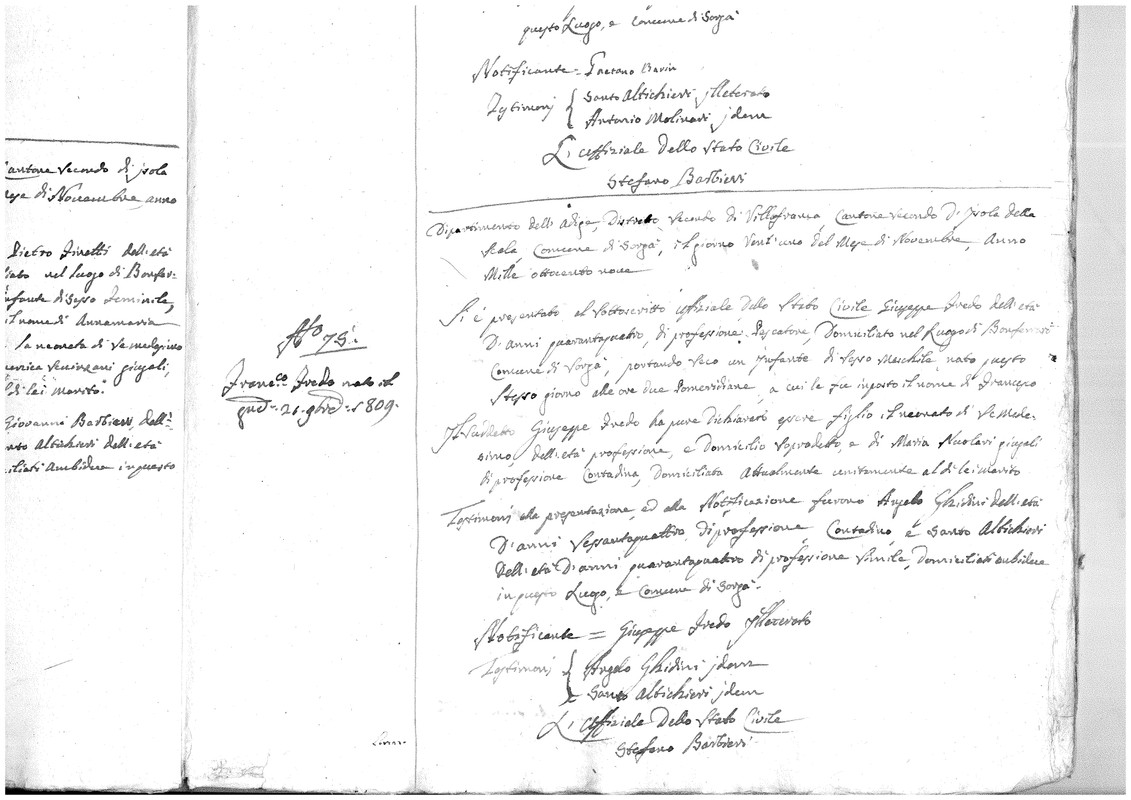 Cantone Secondo di Jsola
Mese di Novembre, anno
Pietro Finetti dell'età
nel Luogo di Bonfer=
Infante di Sesso Feminile,
il nome di Annamaria
la neonata di Se medesimo
giugali,
di lei Marito.
Giovanni Barbieri, dell'
Santo Altichieri dell'età
ciliati Ambidue in questo
N.o 75.
Franc.co Fredo nato il
21. 9bre 1809.
questo Luogo, e Comune di Sorgà
Notificante = Gaetano Bavin
Testimonj { Santo Altichieri jlleterato
Antonio Molinari jdem
L'Uffiziale dello Stato Civile
Stefano Barbieri
Dipartimento dell'Adige, Distretto Secondo di Villafranca Cantone Secondo D'Jsola della
Scala, Comune di Sorgà, il giorno Vent'uno del Mese di Novembre, Anno
Mille ottocento nove
Si è presentato al Sottoscritto Uffiziale dello Stato Civile Giuseppe Fredo dell'età
D'anni quarantaquatro, di professione Pescatore, Domiciliato nel Luogo di Bonferraro
Comune di Sorgà, portando Seco un jnfante di Sesso Maschile, nato questo
Stesso giorno alle ore due Pomeridiane, a cui le fu inposto il nome di Francesco
Jl Sudetto Giuseppe Fredo ha pure Dichiarato essere figlio il neonato di Se Mede=
simo, dell'età professione, e Domicilio Sopradetto, e di Maria Nuolari giugali
di professione Contadina, Domiciliata Attualmente unitamente al di lei Marito
Testimonj alla presentazione, ed alla Notificazione furono Angelo Ghidini dell'età
D'anni Sessantaquattro, di professione Contadino, e Santo Altichieri
dell'età D'anni quarantaquatro di professione Simile, Domiciliati anbidue
in questo Luogo, e Comune di Sorgà.
Notificante = Giuseppe Fredo jlleterato
Testimonj { Angelo Ghidini jdem
Santo Altichieri jdem
L'Uffiziale Dello Stato Civile
Stefano Barbieri